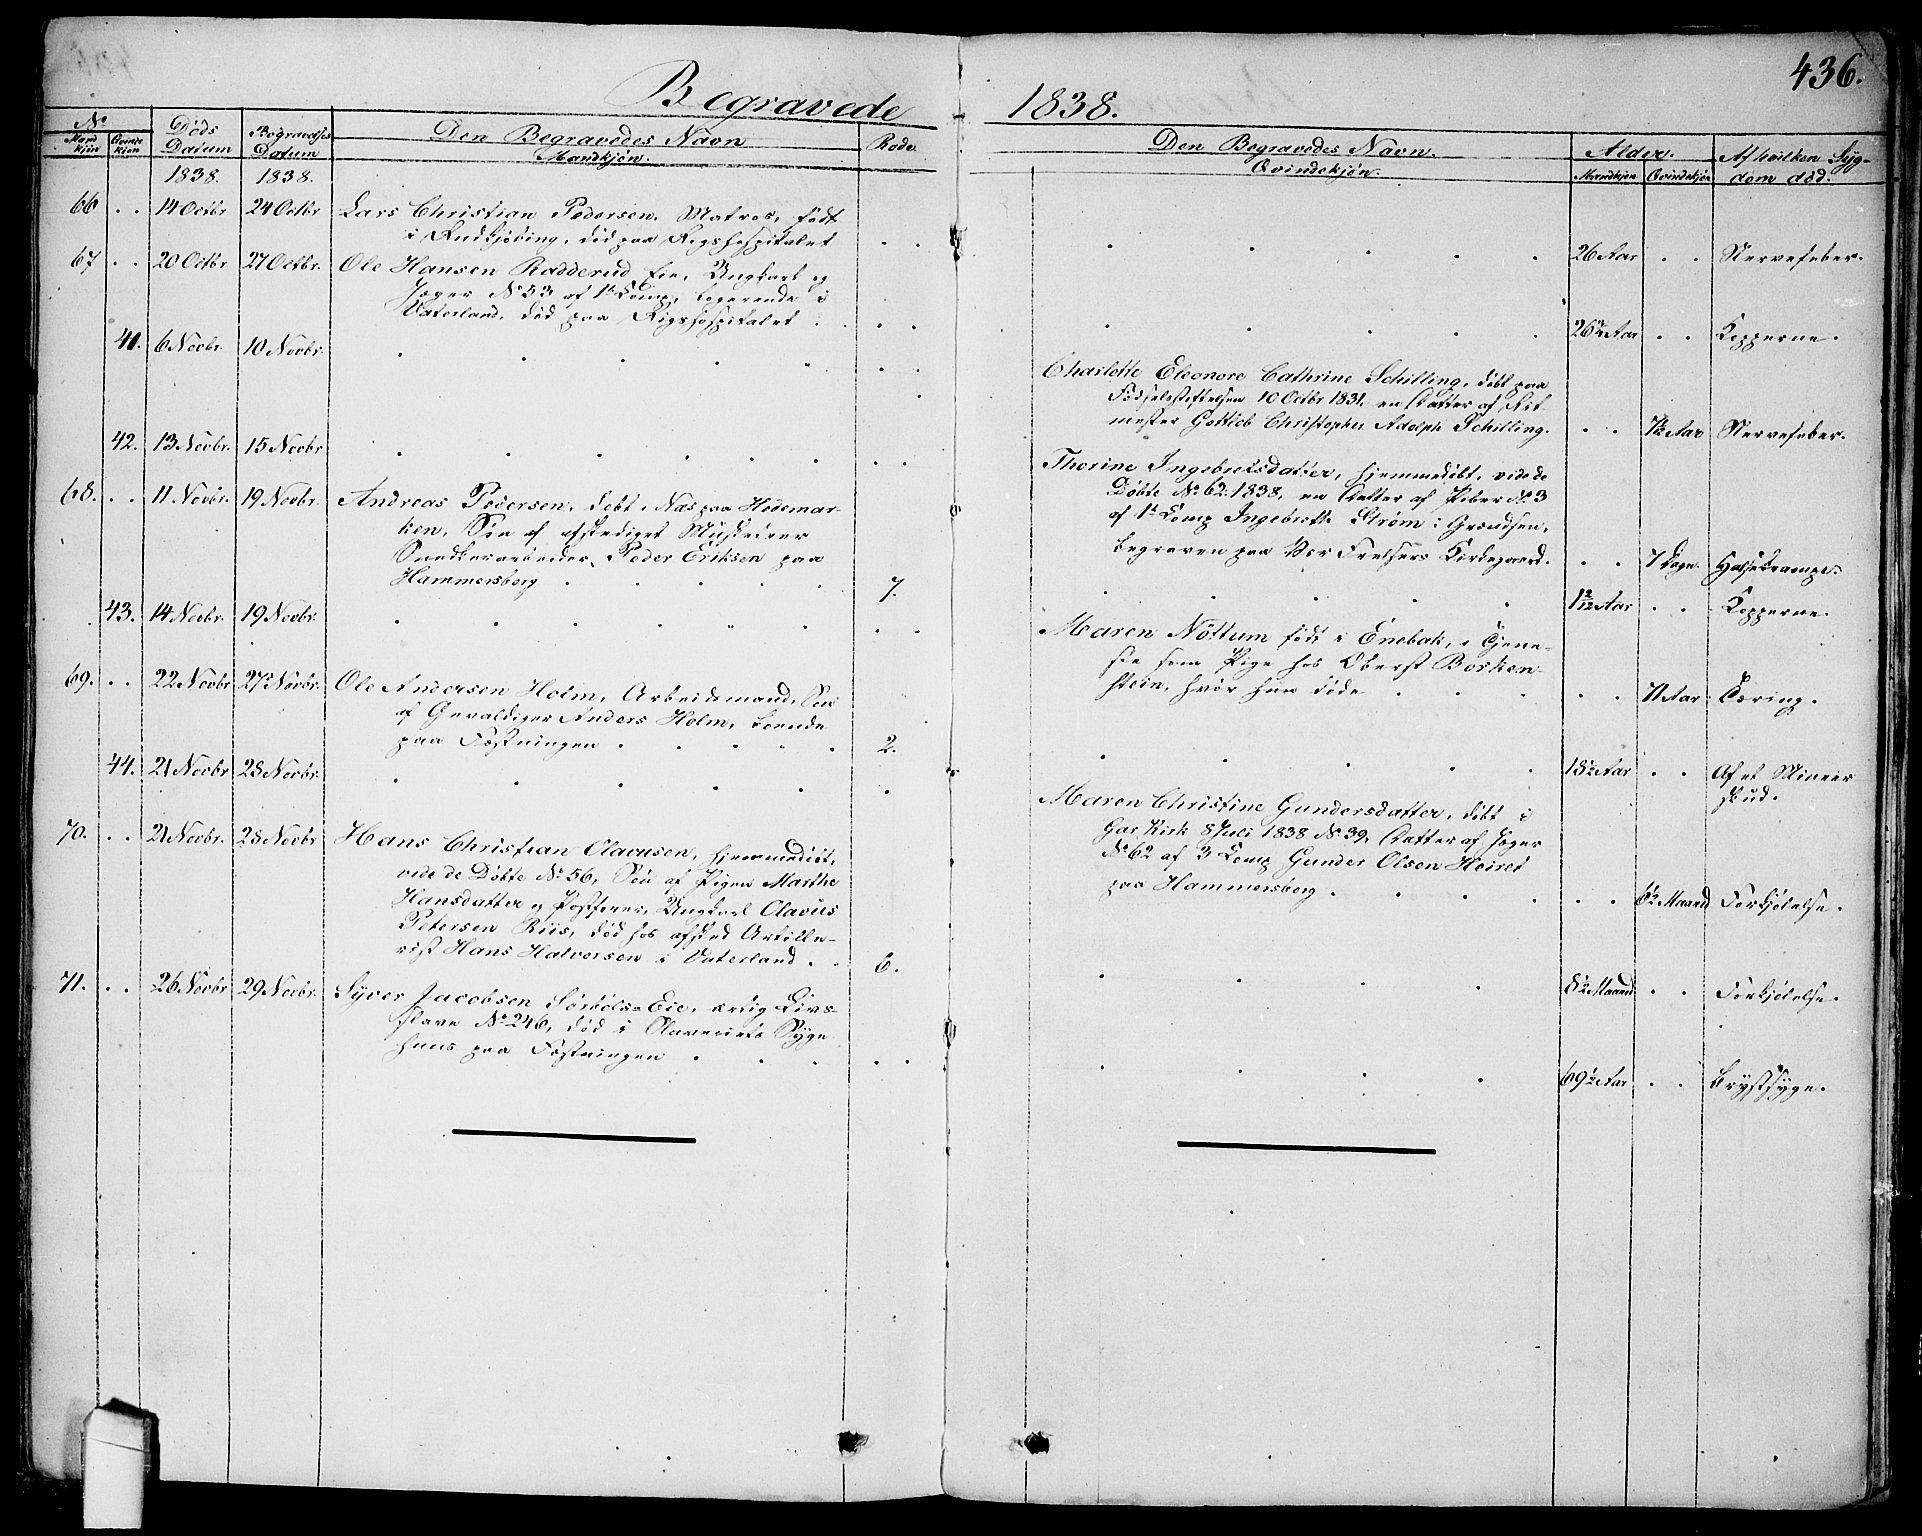 436.
Begravede
1838.
No
Mandkjön
Qvindekjön
Döds Datum
Begravelses Datum
Den Begravedes Navn
Mandkjön.
Rode.
Den Begravedes Navn.
Qvindekjön.
Alder.
Mandkjön
Qvindekjön
Af hvilken Syg-
dom död.
1838.
1838.
66 . . 14 Octbr 24 Octbr Lars Christian Pedersen, Matros, født
i Rudkjöbing, död paa Rigshospitalet . . 26 Aar . . Nervefeber.
67 . . 20 Octbr 27 Octbr. Ole Hansen Radderud Eie, Ungkarl og
Jæger No 53 af 1ste Comp, logerende i
Vaterland, död paa Rigshospitalet . . . 26 Aar . . Kopperne.
41. 6 Novbr. 10 Novbr.
Charlotte Eleonore Cathrine Schilling, döbt paa
Födselsstiftelsen 10 Octbr 1831, en Datter af Rit-
mester Gottlieb Christopher Adolph Schilling. . . 7 1/12 Aar Nervefeber.
42. 13 Novbr. 15 Novbr
Thorine Ingebretsdatter, hjemmedöbt, vide de
Döbte No. 62. 1838, en Datter af Piber No. 3
af 1ste Comp Ingebreth Ström i Grændsen,
begraven paa Vor Frelsers Kirkegaard. . . 7 Dage. Halsekrampe.
68. . . 11 Novbr. 19 Novbr. Andreas Pedersen, döbt i Næs paa Hedemar-
ken, Sön af afskediget Musketerer
Snedkerarbeider, Peder Eriksen paa
Hammersborg 7. 1 2/12 Aar . . Kopperne.
43. 14 Novbr. 19 Novbr.
Maren Nöttum födt i Enebak, i Tjene-
ste som Pige hos Oberst Borken-
stein, hvor hun döde . . 71 Aar Tæring.
69. . . 22 Novbr 27 Novbr. Ole Andersen Holm, Arbeidsmand, Sön
af Gevaldiger Anders Holm, boende
paa Fæstningen 2. 18 1/2 Aar . . Af et Mineer
skud.
44. 21 Novbr 28 Novbr.
Maren Christine Gundersdatter, döbt i
Gar. Kirk 8 Juli 1838 No. 39, Datter af Jæger
No 62 af 3 Comp Gunder Olsen Heiret
paa Hammersborg . . Maaned Forkjölelse.
70. . . 21 Novbr. 28 Novbr Hans Christian Olavusen, hjemmedöbt,
vide de Döbte No. 56, Sön af Pigen Marthe
Hansdatter og Postförer, Ungkarl Olavus
Petersen Riis, död hos afsked Artille-
rist Hans Halvorsen i Vaterland . . 6. 8 1/2 Maaned . . Forkjölelse.
71. . . 26 Novbr 29 Novbr. Syver Jacobsen Sörböls-Eie, ærlig Livs-
slave No. 246, död i Slaveriets Syge
huus paa Fæstningen . . 69 1/2 Aar . . Brystsyge.